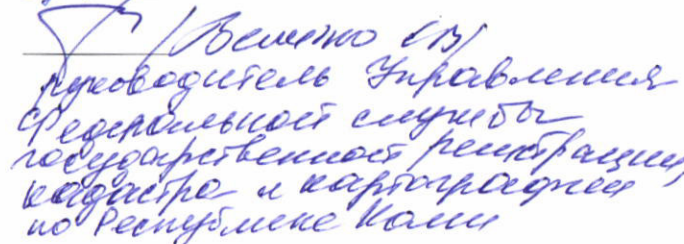 /Величко СВ/
руководитель Управления
Федеральной службы
государственной регистрации,
кадастра и картографии
по Республике Коми